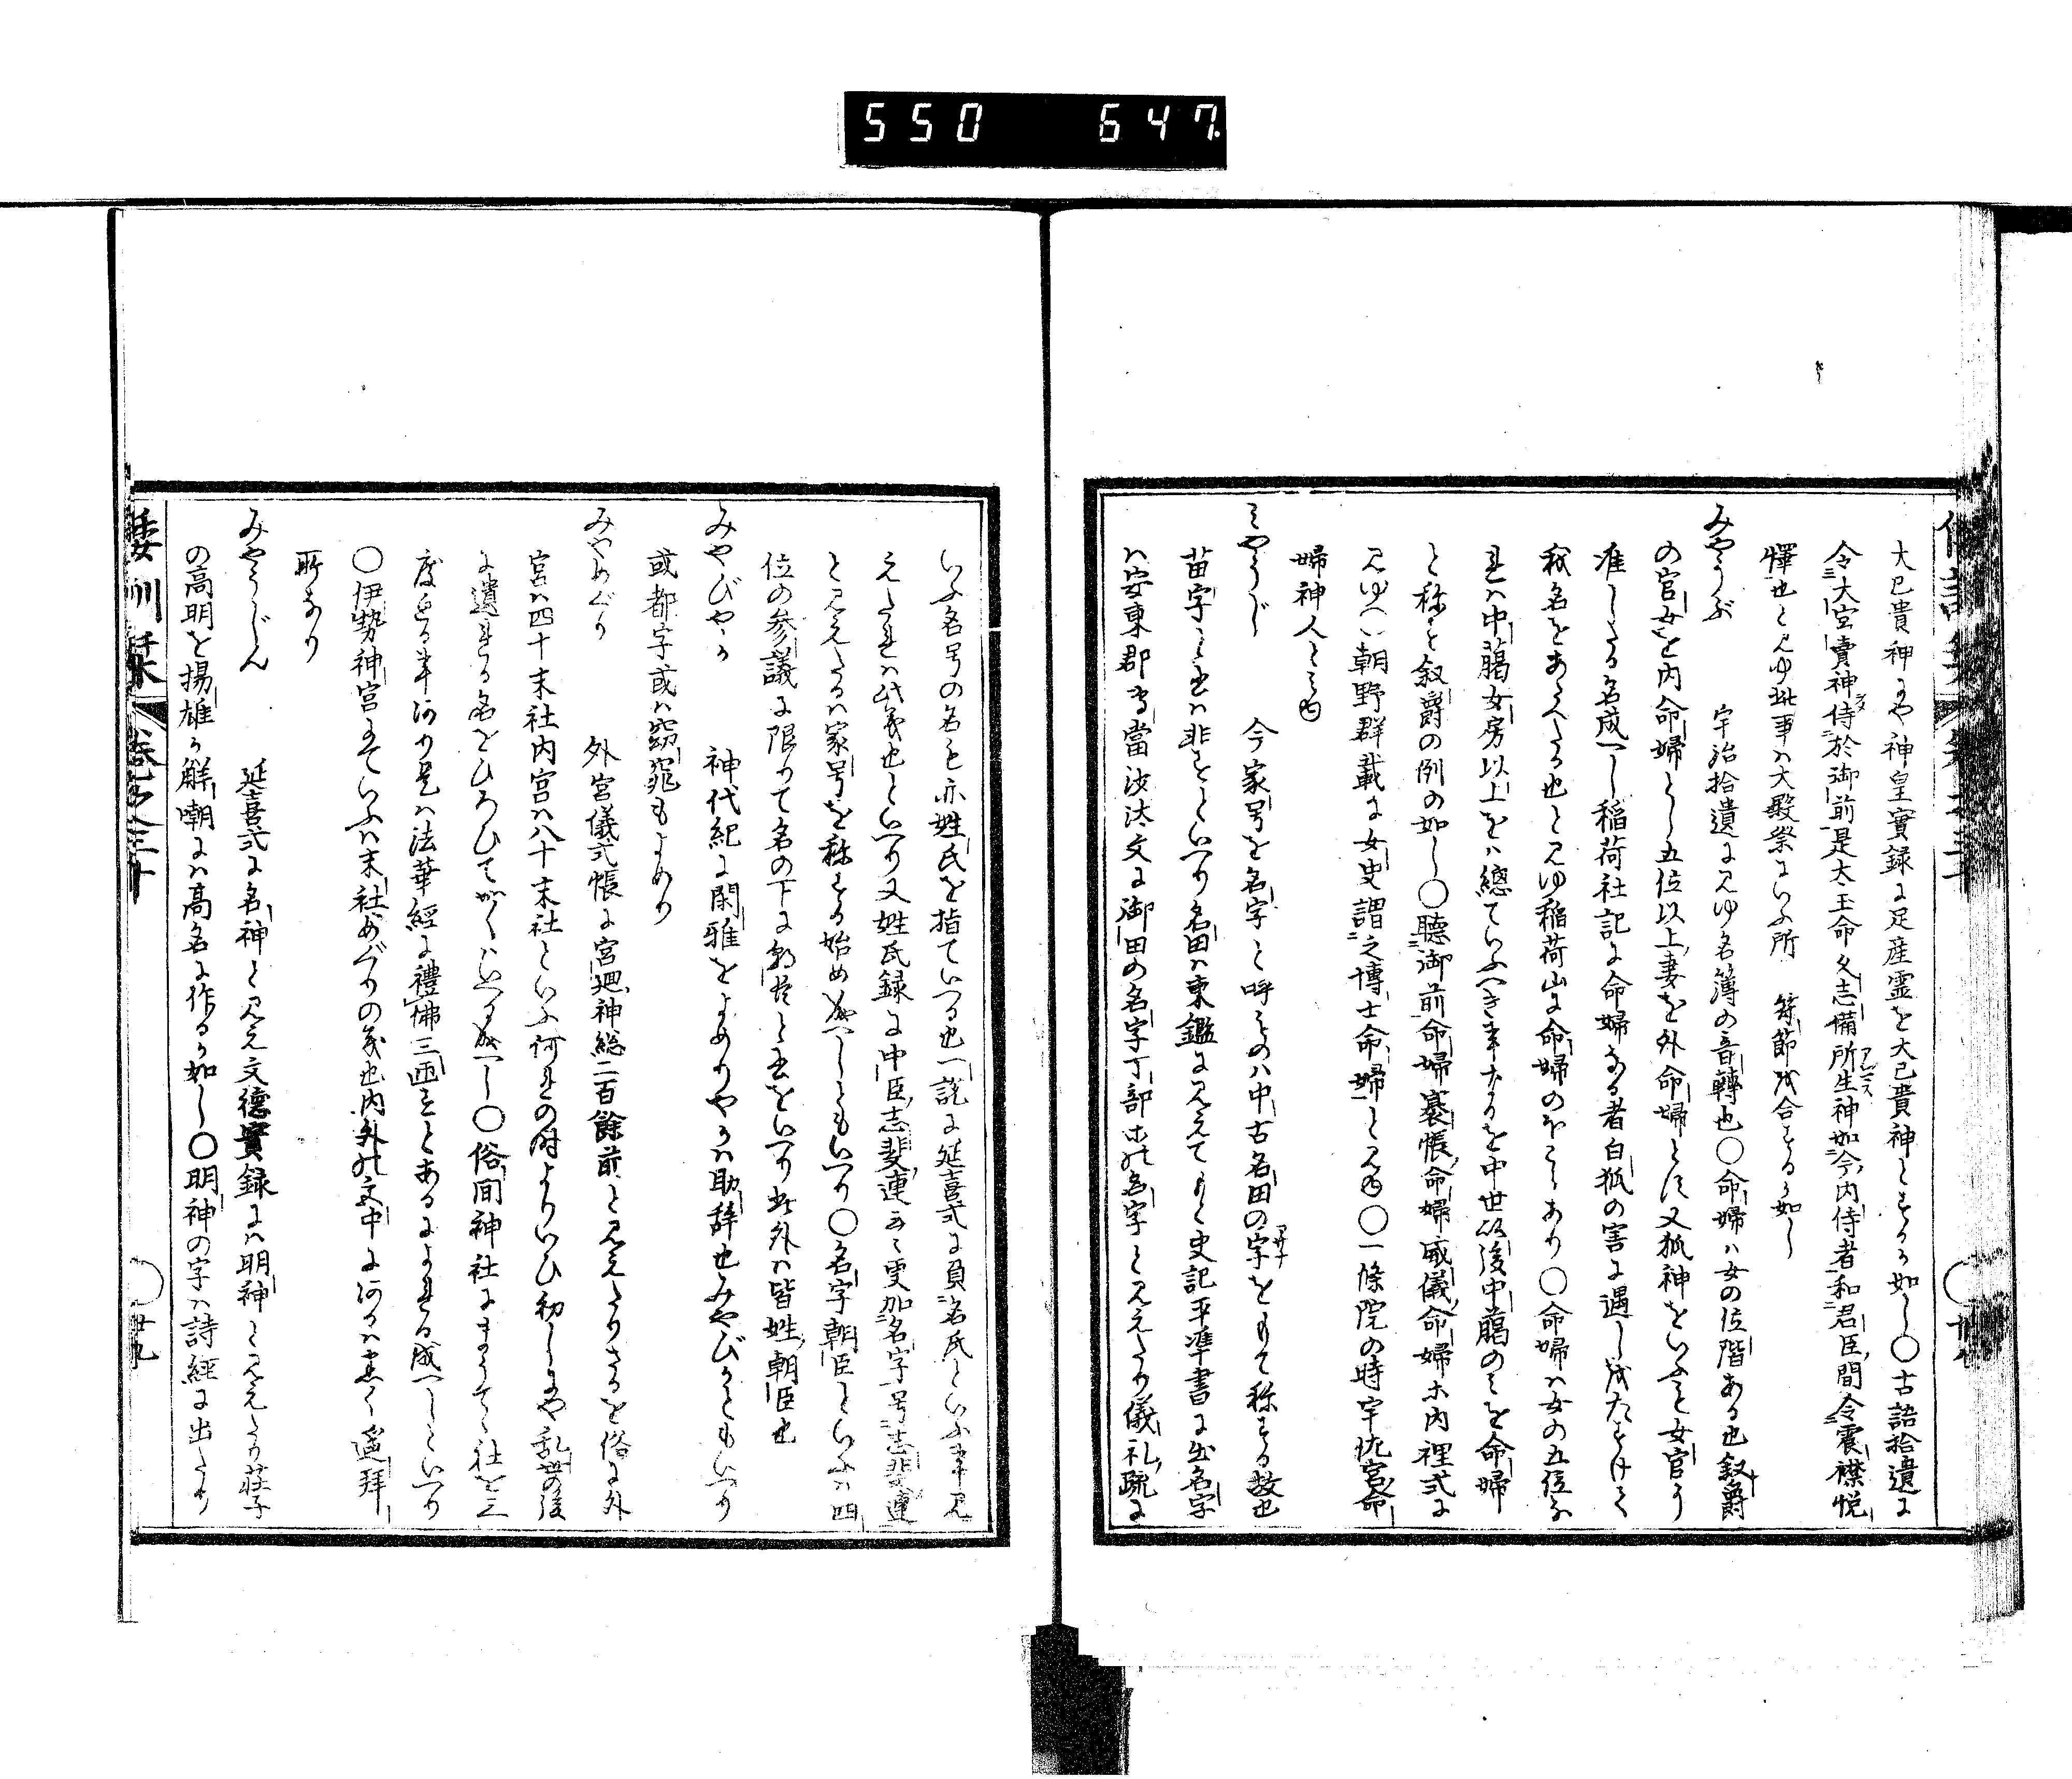 550 647.
大己貴神にや神皇實録に足産霊を大己貴神とするか如し〇古語拾遺に
令大宮賣神侍於御前是太玉命久志備所生神如今内侍者和君臣間令震襟悦
懌也と見ゆ此事ハ大殿祭にいふ所 符節或合するか如し
みやうぶ 宇治拾遺に見ゆ名簿の音轉也〇命婦ハ女の位階ある也叙爵
の官女を内命婦とし五位以上妻を外命婦とす又狐神をいふも女官に
准したる名成へし稲荷社記に命婦なる者白狐の害に遇しをたすけて
我名をあたへたる也と見ゆ稲荷山に命婦のやしろあり〇命婦ハ女の五位な
れハ中臈女房以上をハ總ていふへき事なるを中世以後中臈のミを命婦
と称を叙爵の例の如し〇聽御前命婦褰帳命婦威儀命婦ホ内裡式に
見ゆへハ朝野群載に女史謂之博士命婦と見ゆ〇一條院の時宇佐宮命
婦神人とミゆ
ミやうじ 今家号を名字と呼ものハ中古名田の字をもて称する故也
苗字と書ハ非すといへり名田ハ東鑑に見えてもと史記平準書に出名字
ハ安東郡専當沙汰文に御田の名字丁部ホ此名字と見えたり儀礼疏に
いふ名号の名も亦姓氏を指ていへる也一説に延喜式に負名氏といふ事見
えたれハ此義也といへり又姓氏録に中臣志斐連云々更加名字号志斐連
と見えたるハ家号を称する始め成へしともいへり〇名字朝臣といふハ四
位の参議に限りて名の下に朝臣と書をいへり此外ハ皆姓朝臣也
みやびやか 神代紀に閑雅をよめりやかハ助辞也みやびかともいへり
或都字或ハ窈窕もよめり
みやめぐり 外宮儀式帳に宮廻神総二百餘前と見えたりさるを俗に外
宮ハ四十末社内宮ハ八十末社といふ何れの時よりいひ初しにや乱世の後
に遺れる名をひろひてかくいへる成へし〇俗間神社にまうてゝ社を三
度迴る事あり是ハ法華經に禮佛三迊すとあるによれる成へしといへり
〇伊勢神宮にていふハ末社めぐりの義也内外此宮中にあるハ悉く遥拜
所なり
みやうじん 延喜式に名神と見え文徳實録にハ明神と見えたり荘子
の高明を揚雄か觧嘲にハ高名に作るか如し〇明神の字ハ詩經に出たり
倭訓栞 卷之三十 〇廿九